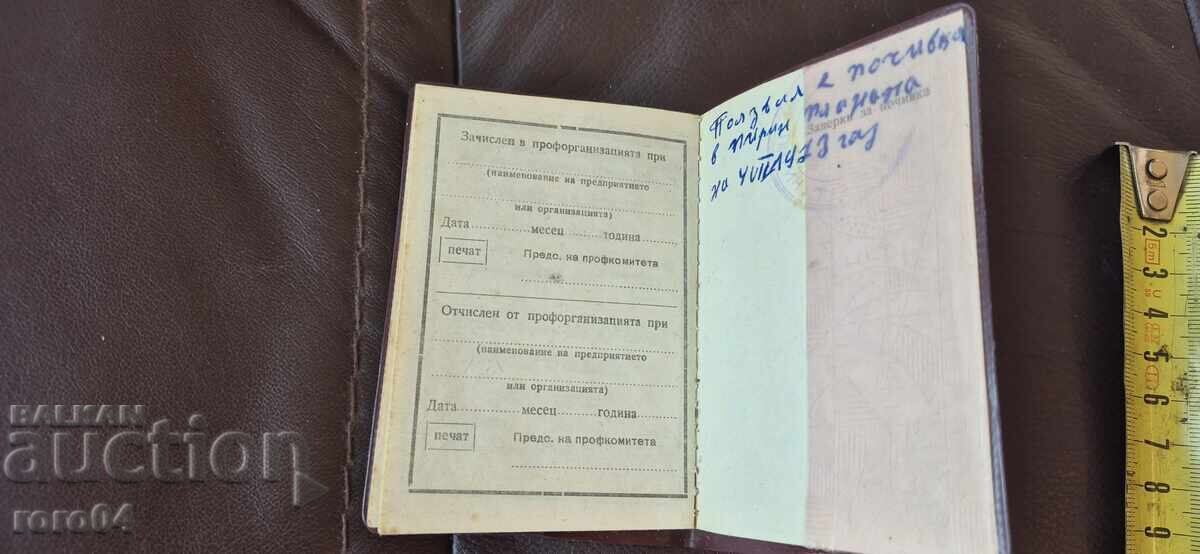 Зачислен в профорганизацията при
(наименование на предприятието
или организацията)
Дата.......... месец ........ година.........
печат
Предс. на профкомитета
Отчислен от профорганизацията при
(наименование на предприятието
или организацията)
Дата.......... месец.......... година.........
печат
Предс. на профкомитета
Ползвал е почивка
в Пирин планина
на 1973 год
Заверки за почивка
BALKAN
auction
roro04
2
3
4
5
6
7
8
9